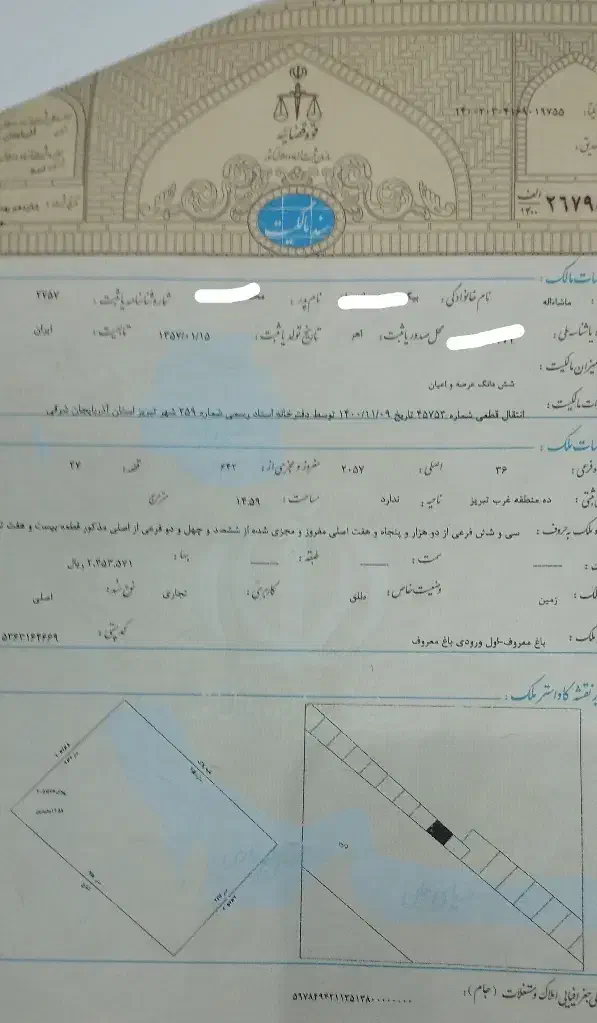 ۱۴۰۰۲۰۳۰۴۱۶۹۰۱۹۷۵۵
قوه قضائیه
سازمان ثبت اسناد و املاک کشور
الف
۱۴۰۰
۲۶۷۹
سند مالکیت
ات مالک:
ماشاءاله نام خانوادگی: نام پدر: شماره شناسنامه یا ثبت: ۲۲۵۷
محل صدور یا ثبت: اهر تاریخ تولد یا ثبت: ۱۳۵۷/۰۱/۱۵ تابعیت: ایران
میزان مالکیت: شش دانگ عرصه و اعیان
ات مالکیت: انتقال قطعی شماره ۴۵۷۵۳ تاریخ ۱۴۰۰/۱۱/۰۹ توسط دفترخانه اسناد رسمی شماره ۲۵۹ شهر تبریز استان آذربایجان شرقی
ات ملک:
فرعی: ۳۶ اصلی: ۲۰۵۷ مفروز و مجزی از: ۶۴۲ قطعه: ۲۷
ثبتی: ده منطقه غرب تبریز ناحیه: ندارد مساحت: ۱۴.۵۹ مترمربع
ملک به حروف: سی و شش فرعی از دو هزار و پنجاه و هفت اصلی مفروز و مجزی شده از ششصد و چهل و دو فرعی از اصلی مذکور قطعه بیست و هفت
سمت: طبقه: بها: ۲,۳۵۳,۵۷۱ ریال
ملک: زمین وضعیت خاص: طلق کاربری: تجاری نوع سند: اصلی
ملک: باغ معروف-اول ورودی باغ معروف کد پستی: ۵۳۶۳۱۶۴۶۶۹
نقشه کاداستر ملک:
جغرافیایی املاک و مستغلات (جام): ۵۹۷۸۴۹۴۲۱۱۲۵۱۳۸۰۰۰۰۰۰۰۰۰